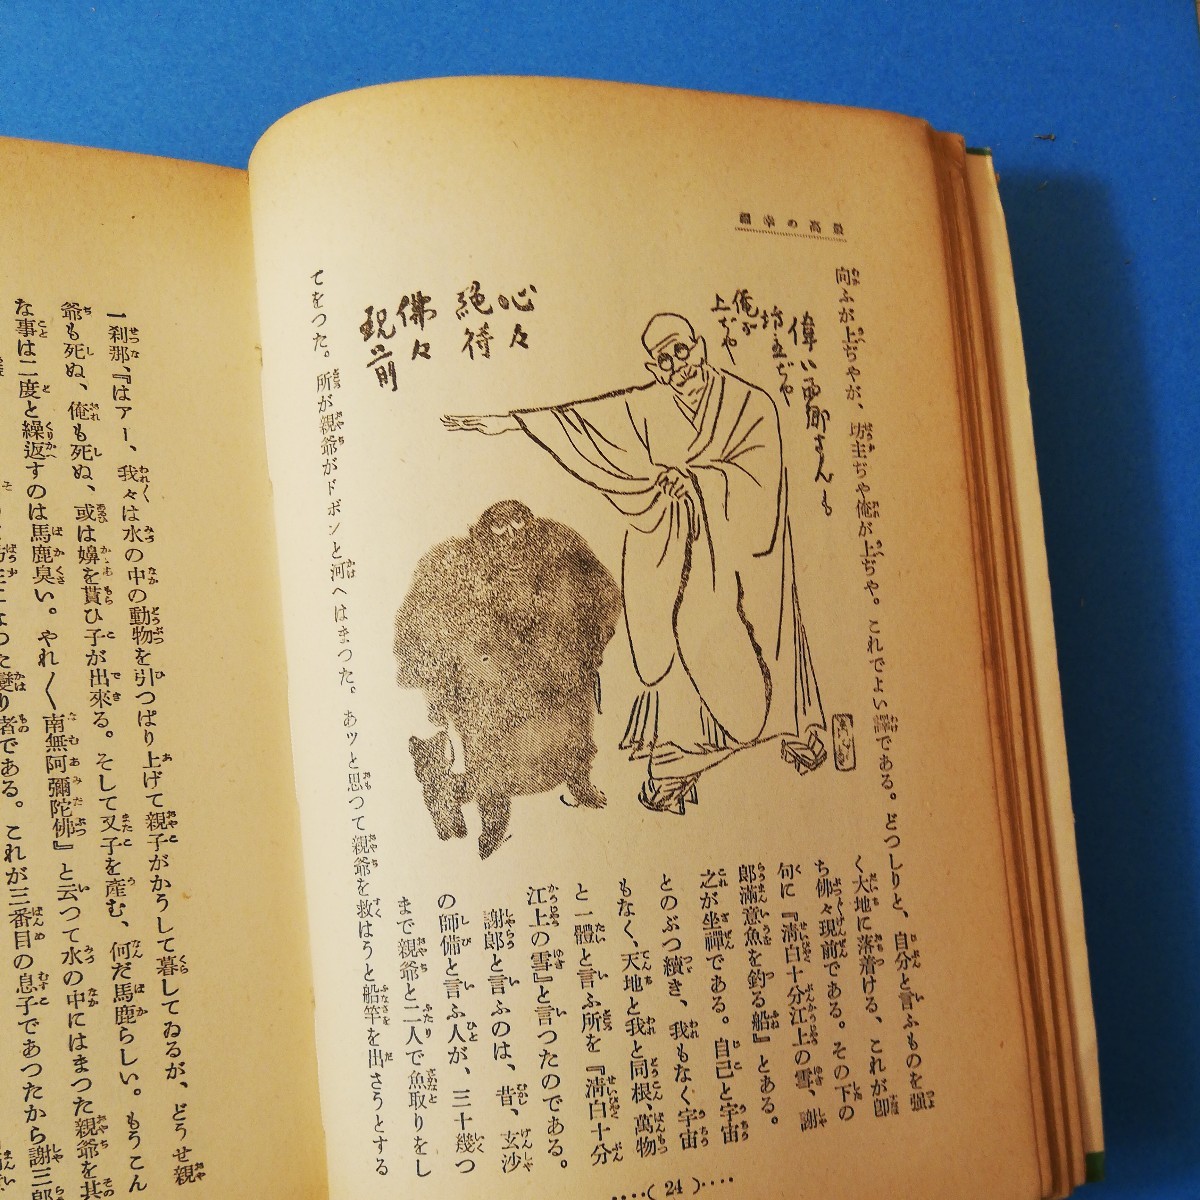 最高の幸福
向ふが上ぢやが、坊主ぢや俺が上ぢや。これでよい譯である。どつしりと、自分と言ふものを强
く大地に落着ける、これが卽
ち佛々現前である。その下の
句に『淸白十分江上の雪、謝
郞滿意魚を釣る船』とある。
之が坐禪である。自己と宇宙
とのぶつ續き、我もなく宇宙
もなく、天地と我と同根、萬物
と一體と言ふ所を『淸白十分
江上の雪』と言つたのである。
謝郞と言ふのは、昔、玄沙
の師備と言ふ人が、三十幾つ
まで親爺と二人で魚取りをし
てをつた。所が親爺がドボンと河へはまつた。あツと思つて親爺を救はうと船竿を出さうとする
偉い西鄕さんも
坊主ぢや
俺が
上ぢや
心々
絕待
佛々
現前
....( 24 )....
一刹那、『はアー、我々は水の中の動物を引つぱり上げて親子がかうして暮してゐるが、どうせ親
爺も死ぬ、俺も死ぬ、或は嬶を貰ひ子が出來る。そして又子を產む、何だ馬鹿らしい。もうこん
な事は二度と繰返すのは馬鹿臭い。やれ〱南無阿彌陀佛』と云つて水の中にはまつた親爺を其
者である。これが三番目の息子であつたから謝三郞